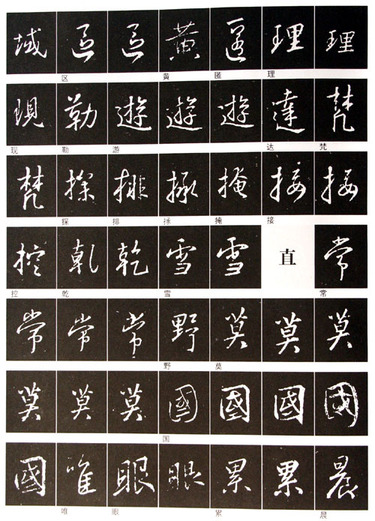 域 區 區 黃 匿 理 理
区 黄 匿 理
現 勒 遊 遊 遊 達 梵
现 勒 游 达 梵
梵 探 排 掩 接 接
探 排 掩 接
控 乾 乾 雪 雪 直 常
控 乾 雪 常
常 常 常 野 莫 莫 莫
野 莫
莫 莫 莫 國 國 國 國
国
國 唯 眼 眼 累 累 晨
唯 眼 累 晨